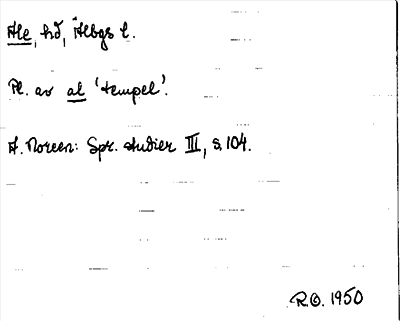 Ale, hd, Älbgs l.
Pl. av al 'tempel'.
A. Noreen: Spr. studier III, s. 104.
R.O. 1950